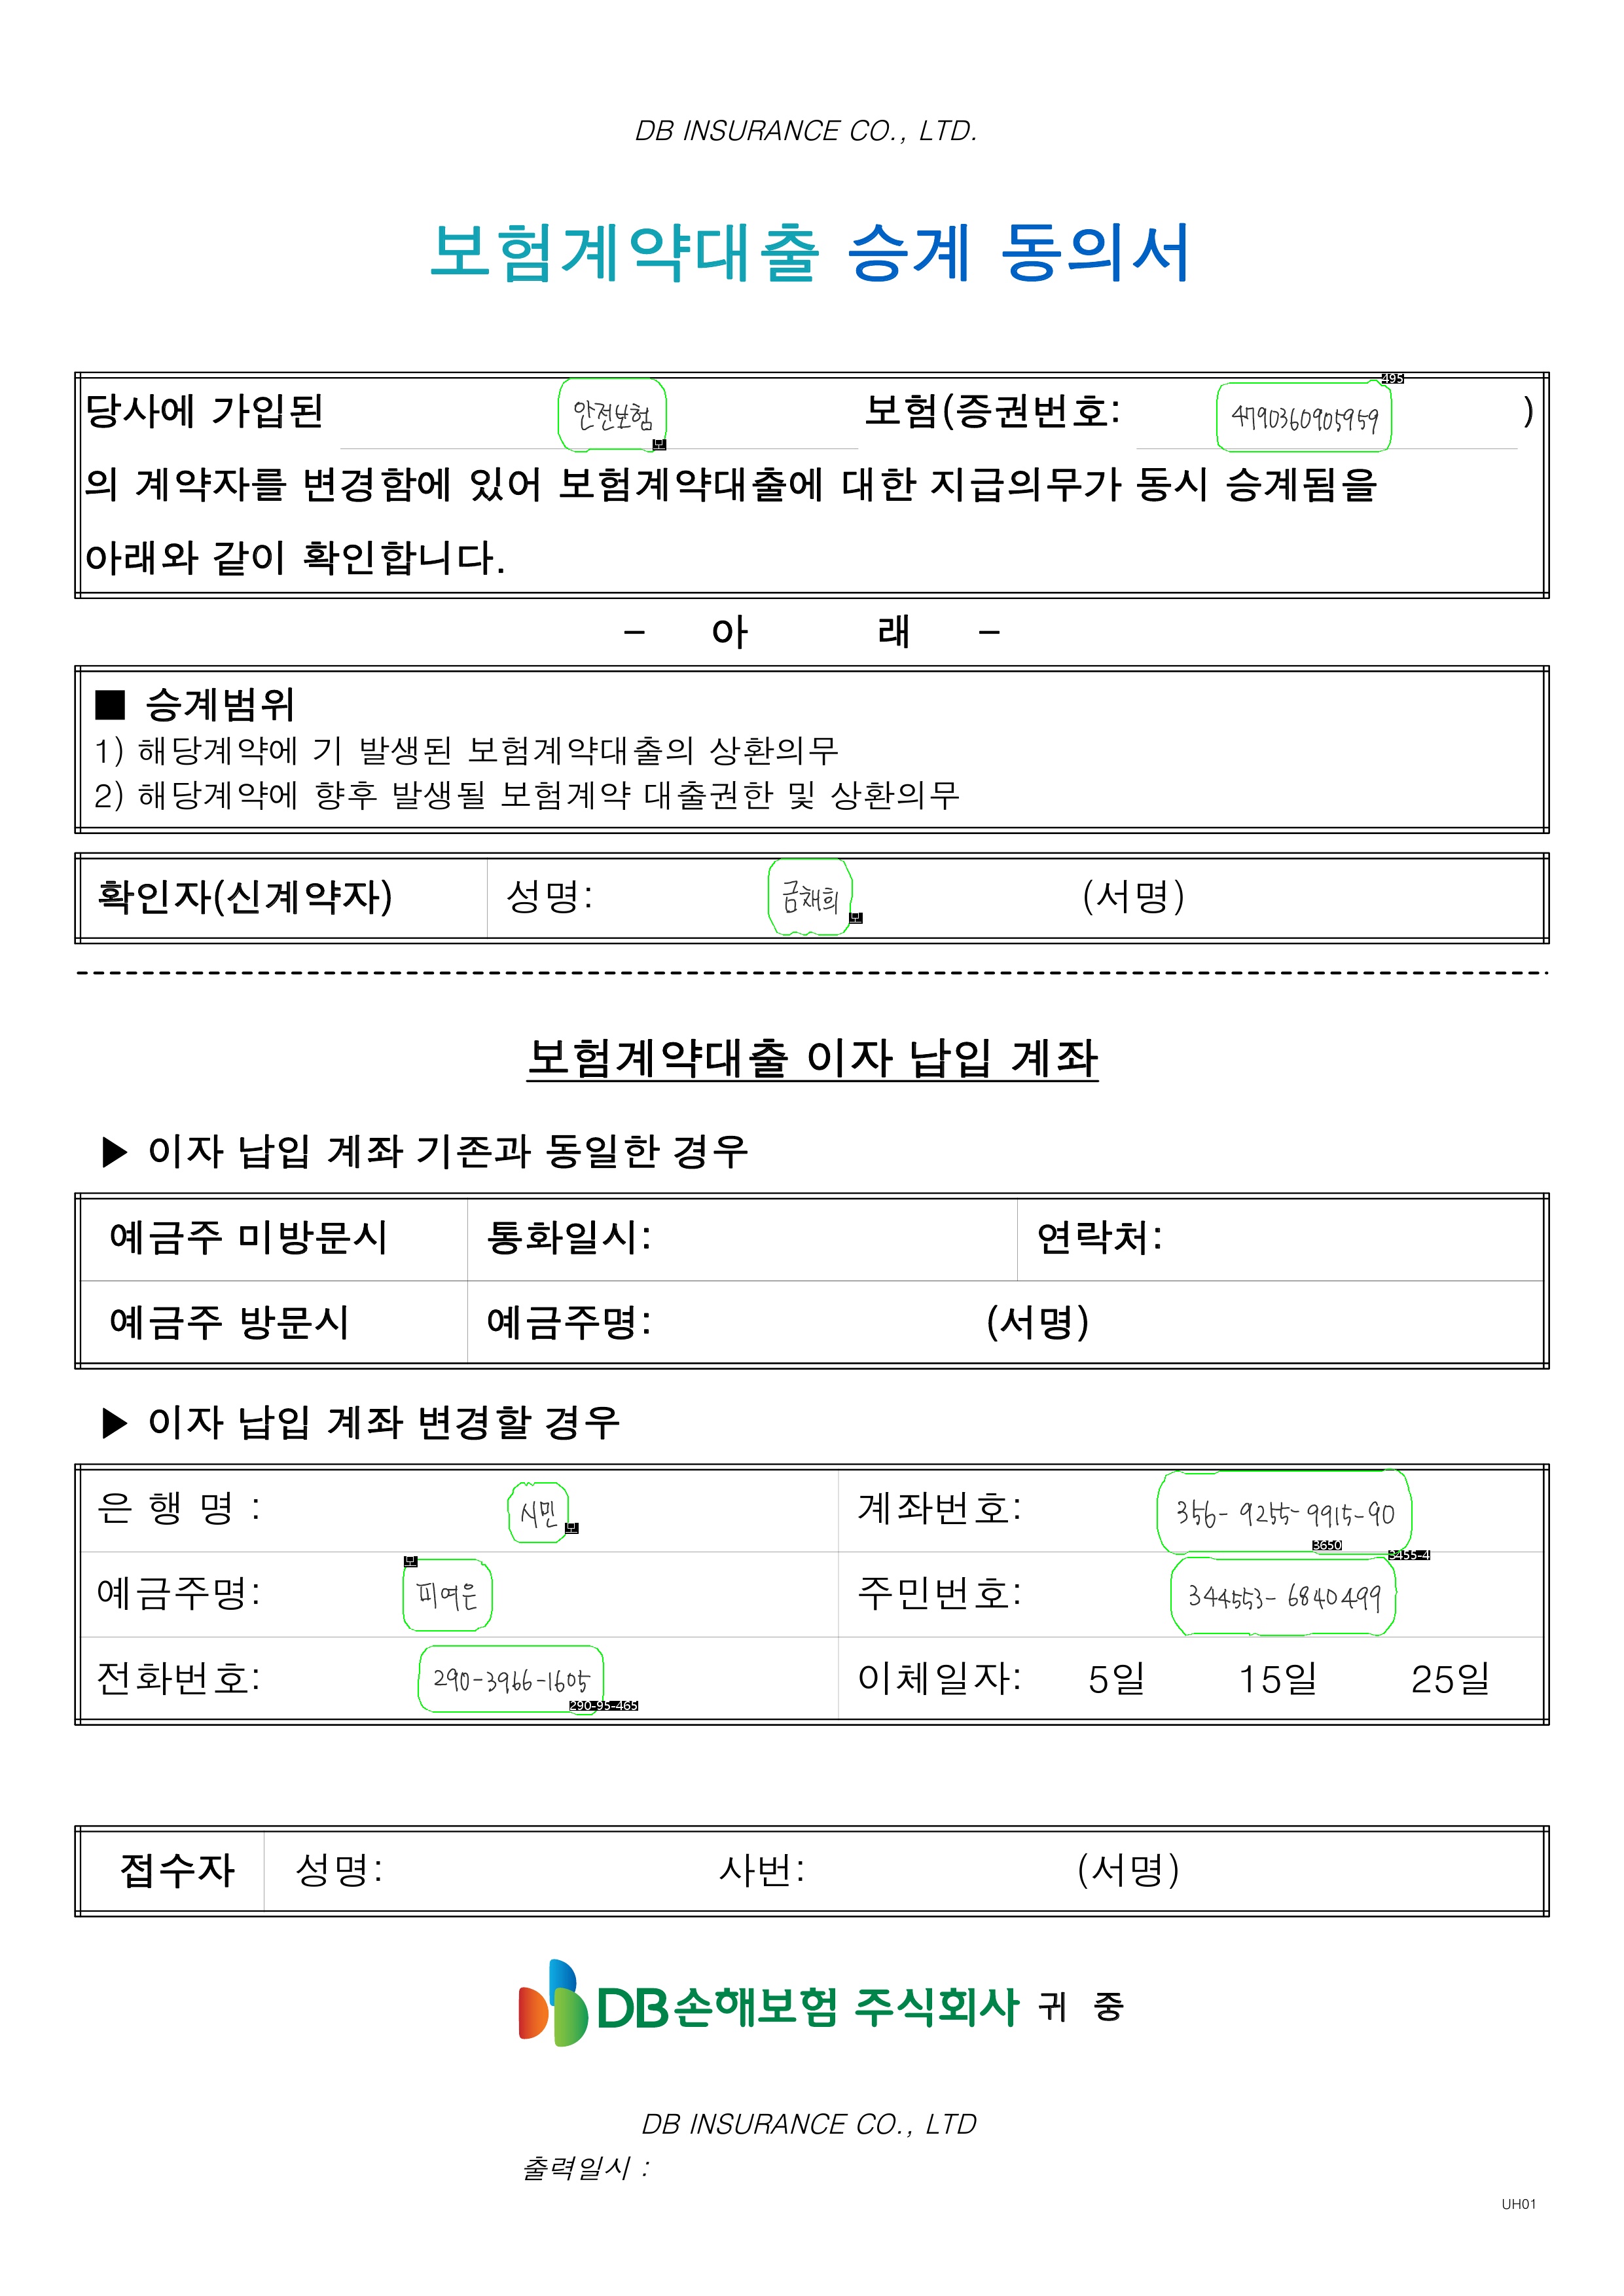 DB INSURANCE CO., LTD.
보험계약대출 승계 동의서
당사에 가입된 안전보험 보험(증권번호: 4790360905959 )
495
보
의 계약자를 변경함에 있어 보험계약대출에 대한 지급의무가 동시 승계됨을
아래와 같이 확인합니다.
- 아 래 -
■ 승계범위
1) 해당계약에 기 발생된 보험계약대출의 상환의무
2) 해당계약에 향후 발생될 보험계약 대출권한 및 상환의무
확인자(신계약자) 성명: 금채희 (서명)
보
보험계약대출 이자 납입 계좌
▶ 이자 납입 계좌 기존과 동일한 경우
예금주 미방문시 통화일시: 연락처:
예금주 방문시 예금주명: (서명)
▶ 이자 납입 계좌 변경할 경우
은 행 명 : 시민 계좌번호: 356-9255-9915-90
보 3650
보 3455-4
예금주명: 피여은 주민번호: 344553-6840499
전화번호: 290-3966-1605 이체일자: 5일 15일 25일
290-95-465
접수자 성명: 사번: (서명)
DB손해보험 주식회사 귀 중
DB INSURANCE CO., LTD
출력일시 :
UH01